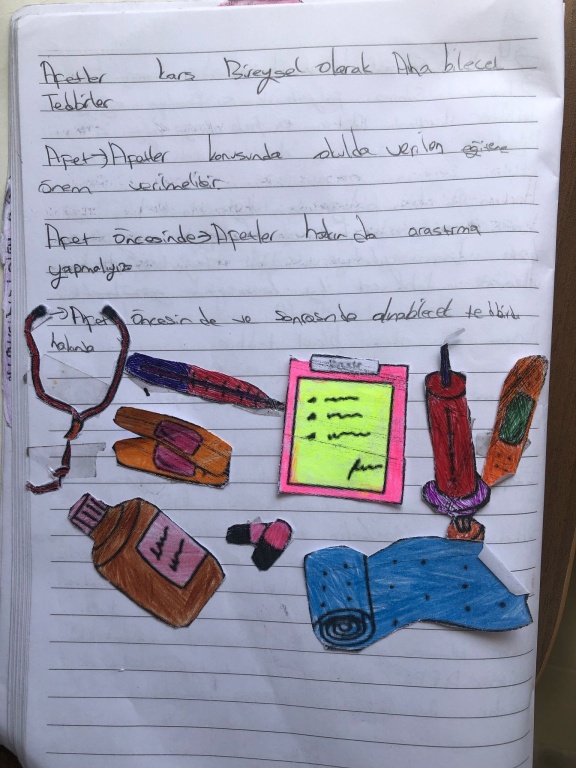 Afetler kars Bireysel olarak Alına bilecek
Tedbirler
Afet→Afetler konusunda okulda verilen eğitime
önem verilmelidir
Afet öncesinde→Afetler hakında arastırma
yapmalıyız
→Afet öncesinde ve sonrasında alınabilecek tedbirler
hakında